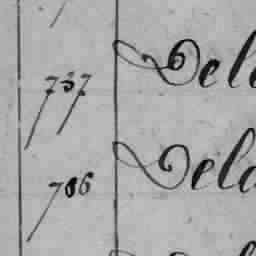 737 Dele
786 Dela